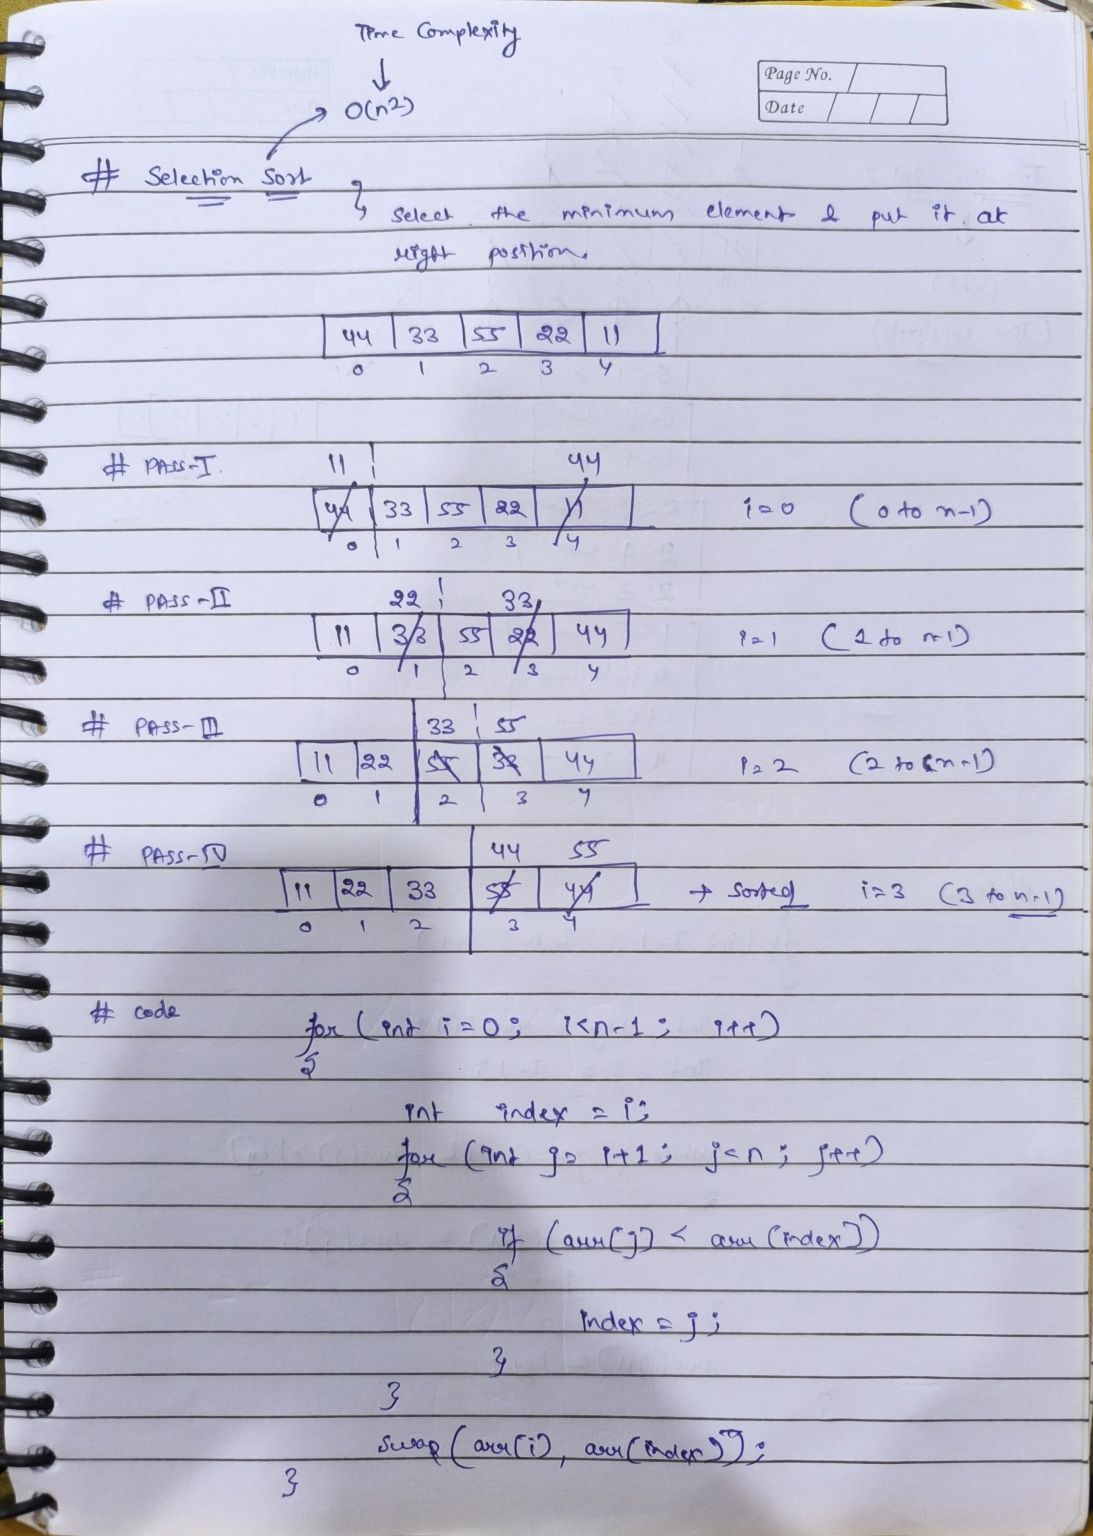 Time Complexity
↓
O(n2)
Page No.
Date
# Selection Sort
Select the minimum element & put it at
right position.
44 33 55 22 11
0 1 2 3 4
# PASS-I. 11 44
44 33 55 22 11 i=0 (0 to n-1)
0 1 2 3 4
# PASS-II 22 33
11 33 55 22 44 i=1 (1 to n-1)
0 1 2 3 4
# PASS-III 33 55
11 22 55 33 44 i=2 (2 to n-1)
0 1 2 3 4
# PASS-IV 44 55
11 22 33 55 44 → sorted i=3 (3 to n-1)
0 1 2 3 4
# code
for (int i=0; i<n-1; i++)
{
int index = i;
for (int j= i+1; j<n; j++)
{
if (arr[j] < arr[index])
{
index = j;
}
}
swap(arr[i], arr[index]);
}